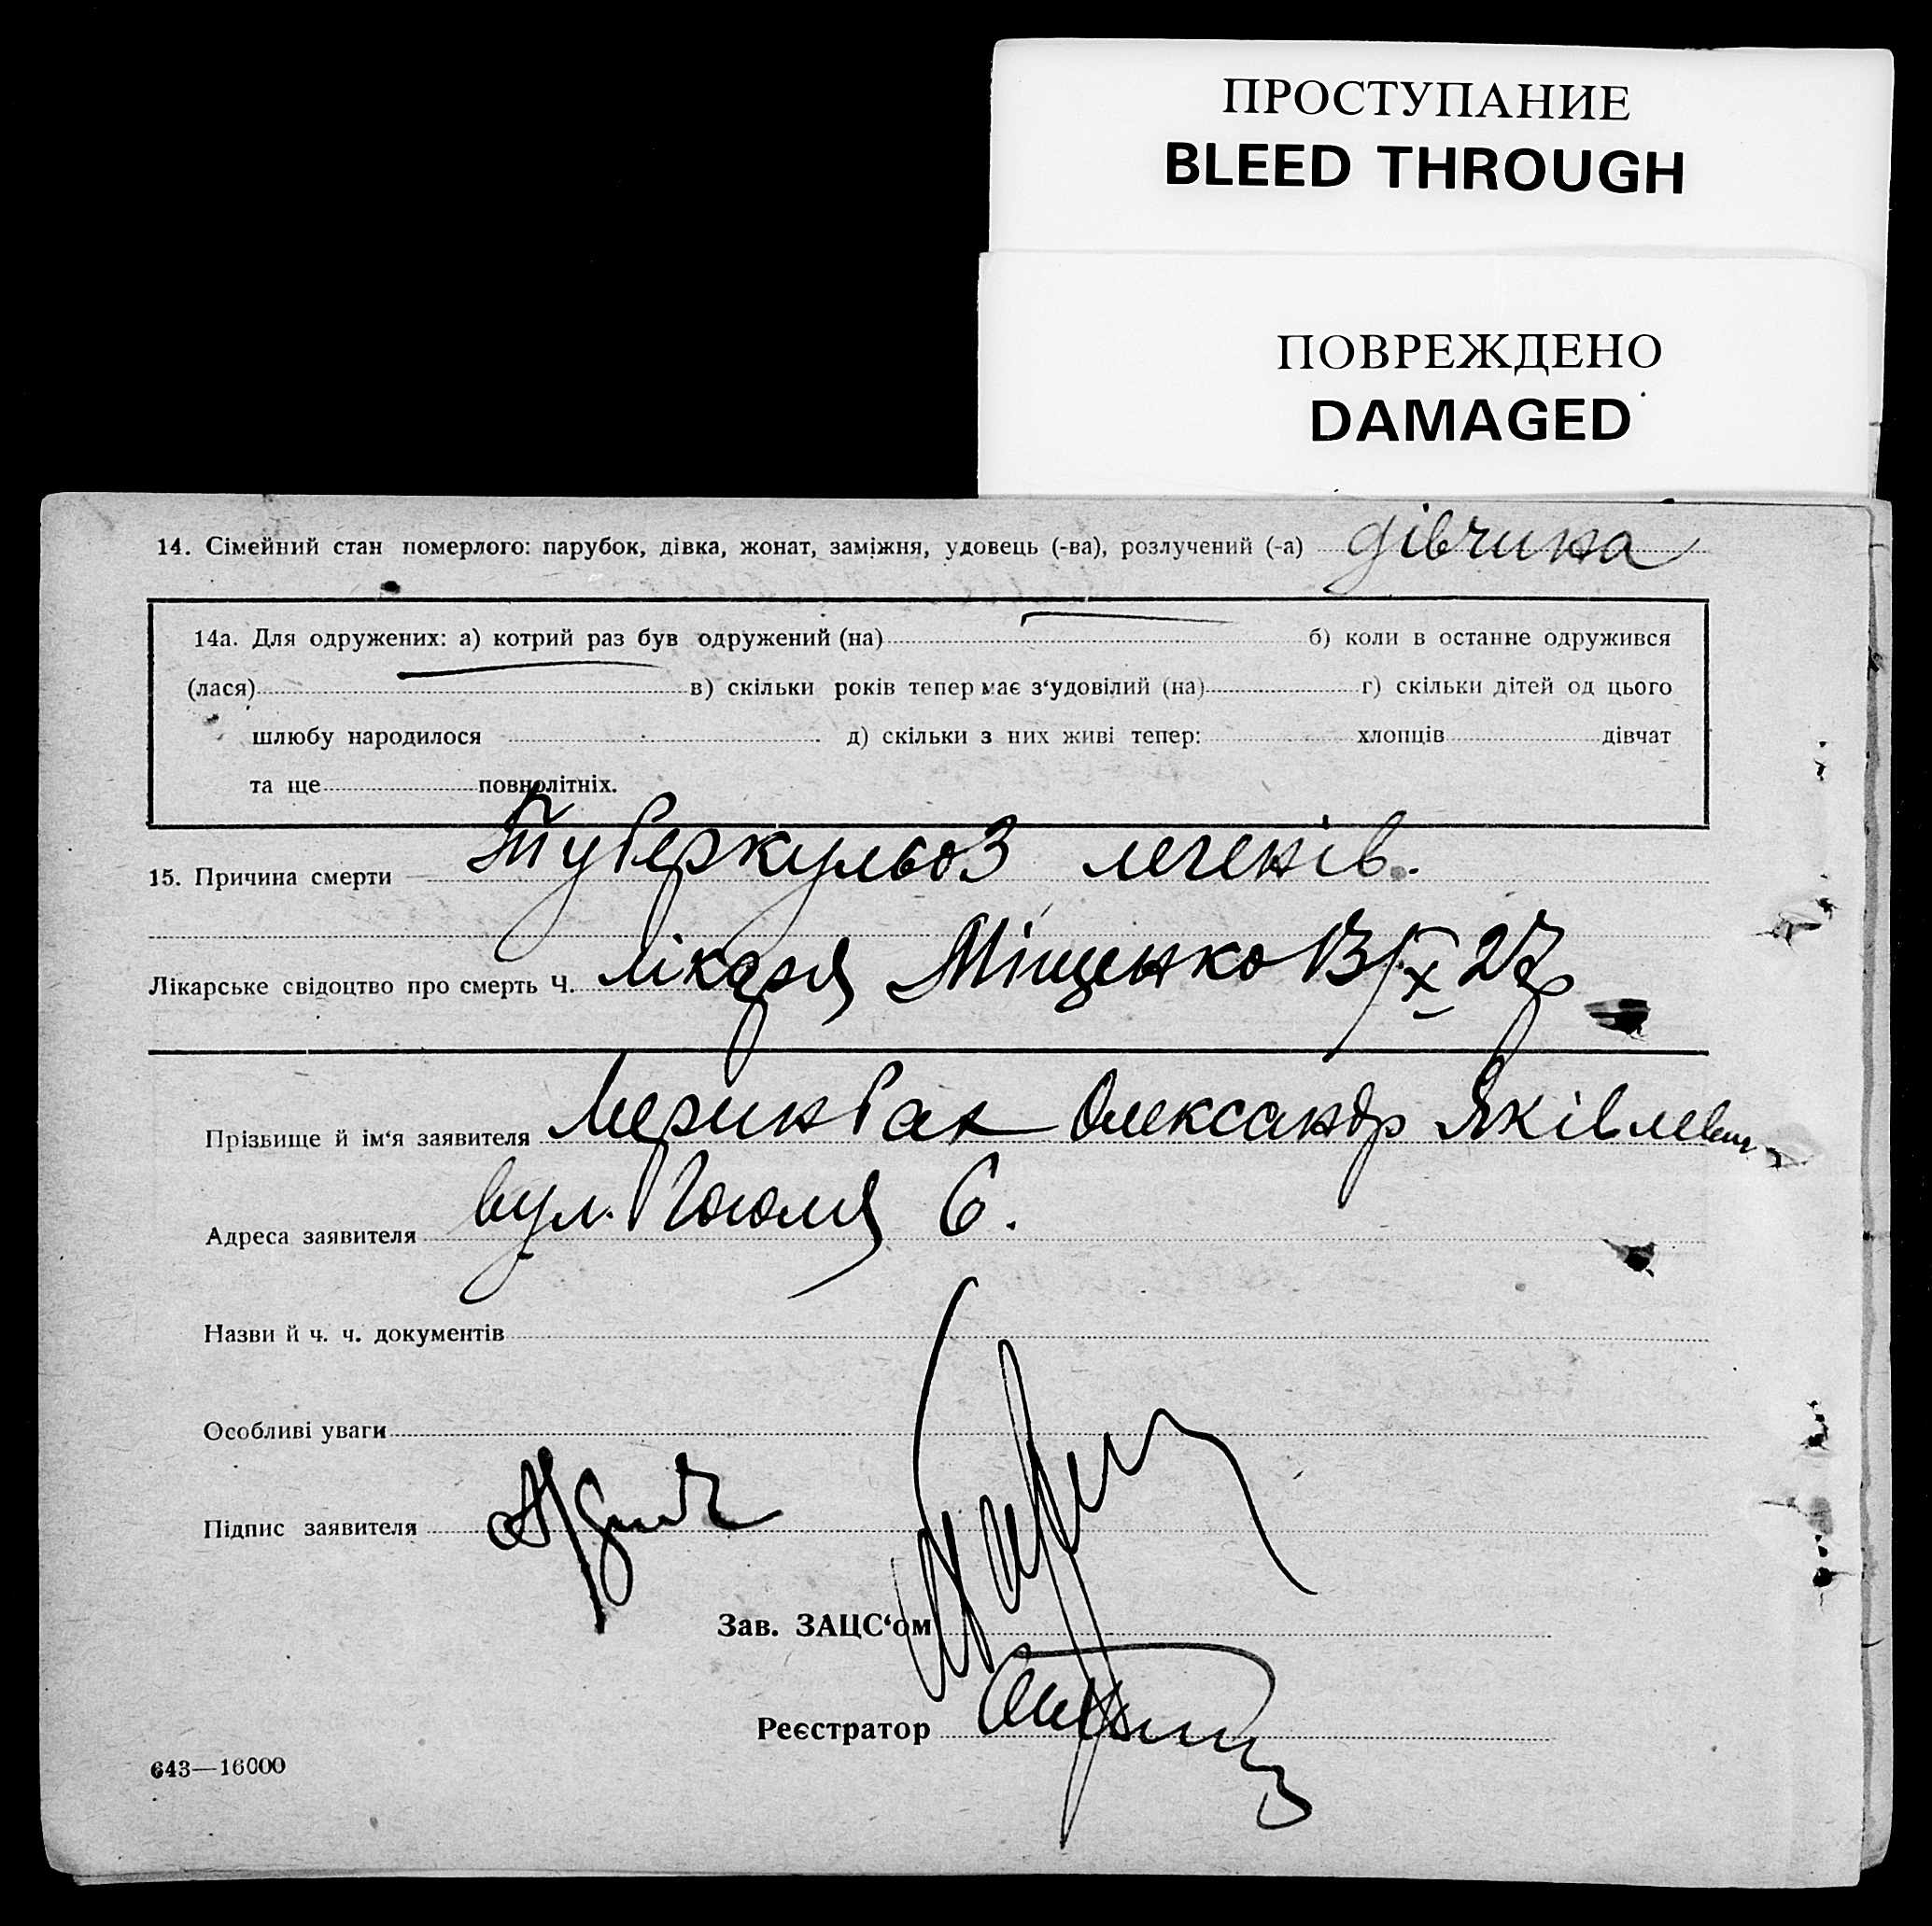 ПРОСТУПАНИЕ
BLEED THROUGH
ПОВРЕЖДЕНО
DAMAGED
14. Сімейний стан померлого: парубок, дівка, жонат, заміжня, удовець (-ва), розлучений (-а) дівчина
14а. Для одружених: а) котрий раз був одружений (на) б) коли в останнє одружився
(лася) в) скільки років тепер має з‘удовілий (на) г) скільки дітей од цього
шлюбу народилося д) скільки з них живі тепер: хлопців дівчат
та ще повнолітніх.
15. Причина смерти Туберкульоз легенів.
Лікарське свідоцтво про смерть Ч. лікаря Міщенко 13/IX 27
Прізвище й ім‘я заявителя Олександр Яківлевич
Адреса заявителя вул. Гоголя 6.
Назви й ч. ч. документів
Особливі уваги
Підпис заявителя
Зав. ЗАЦС‘ом
Реєстратор
643—16000